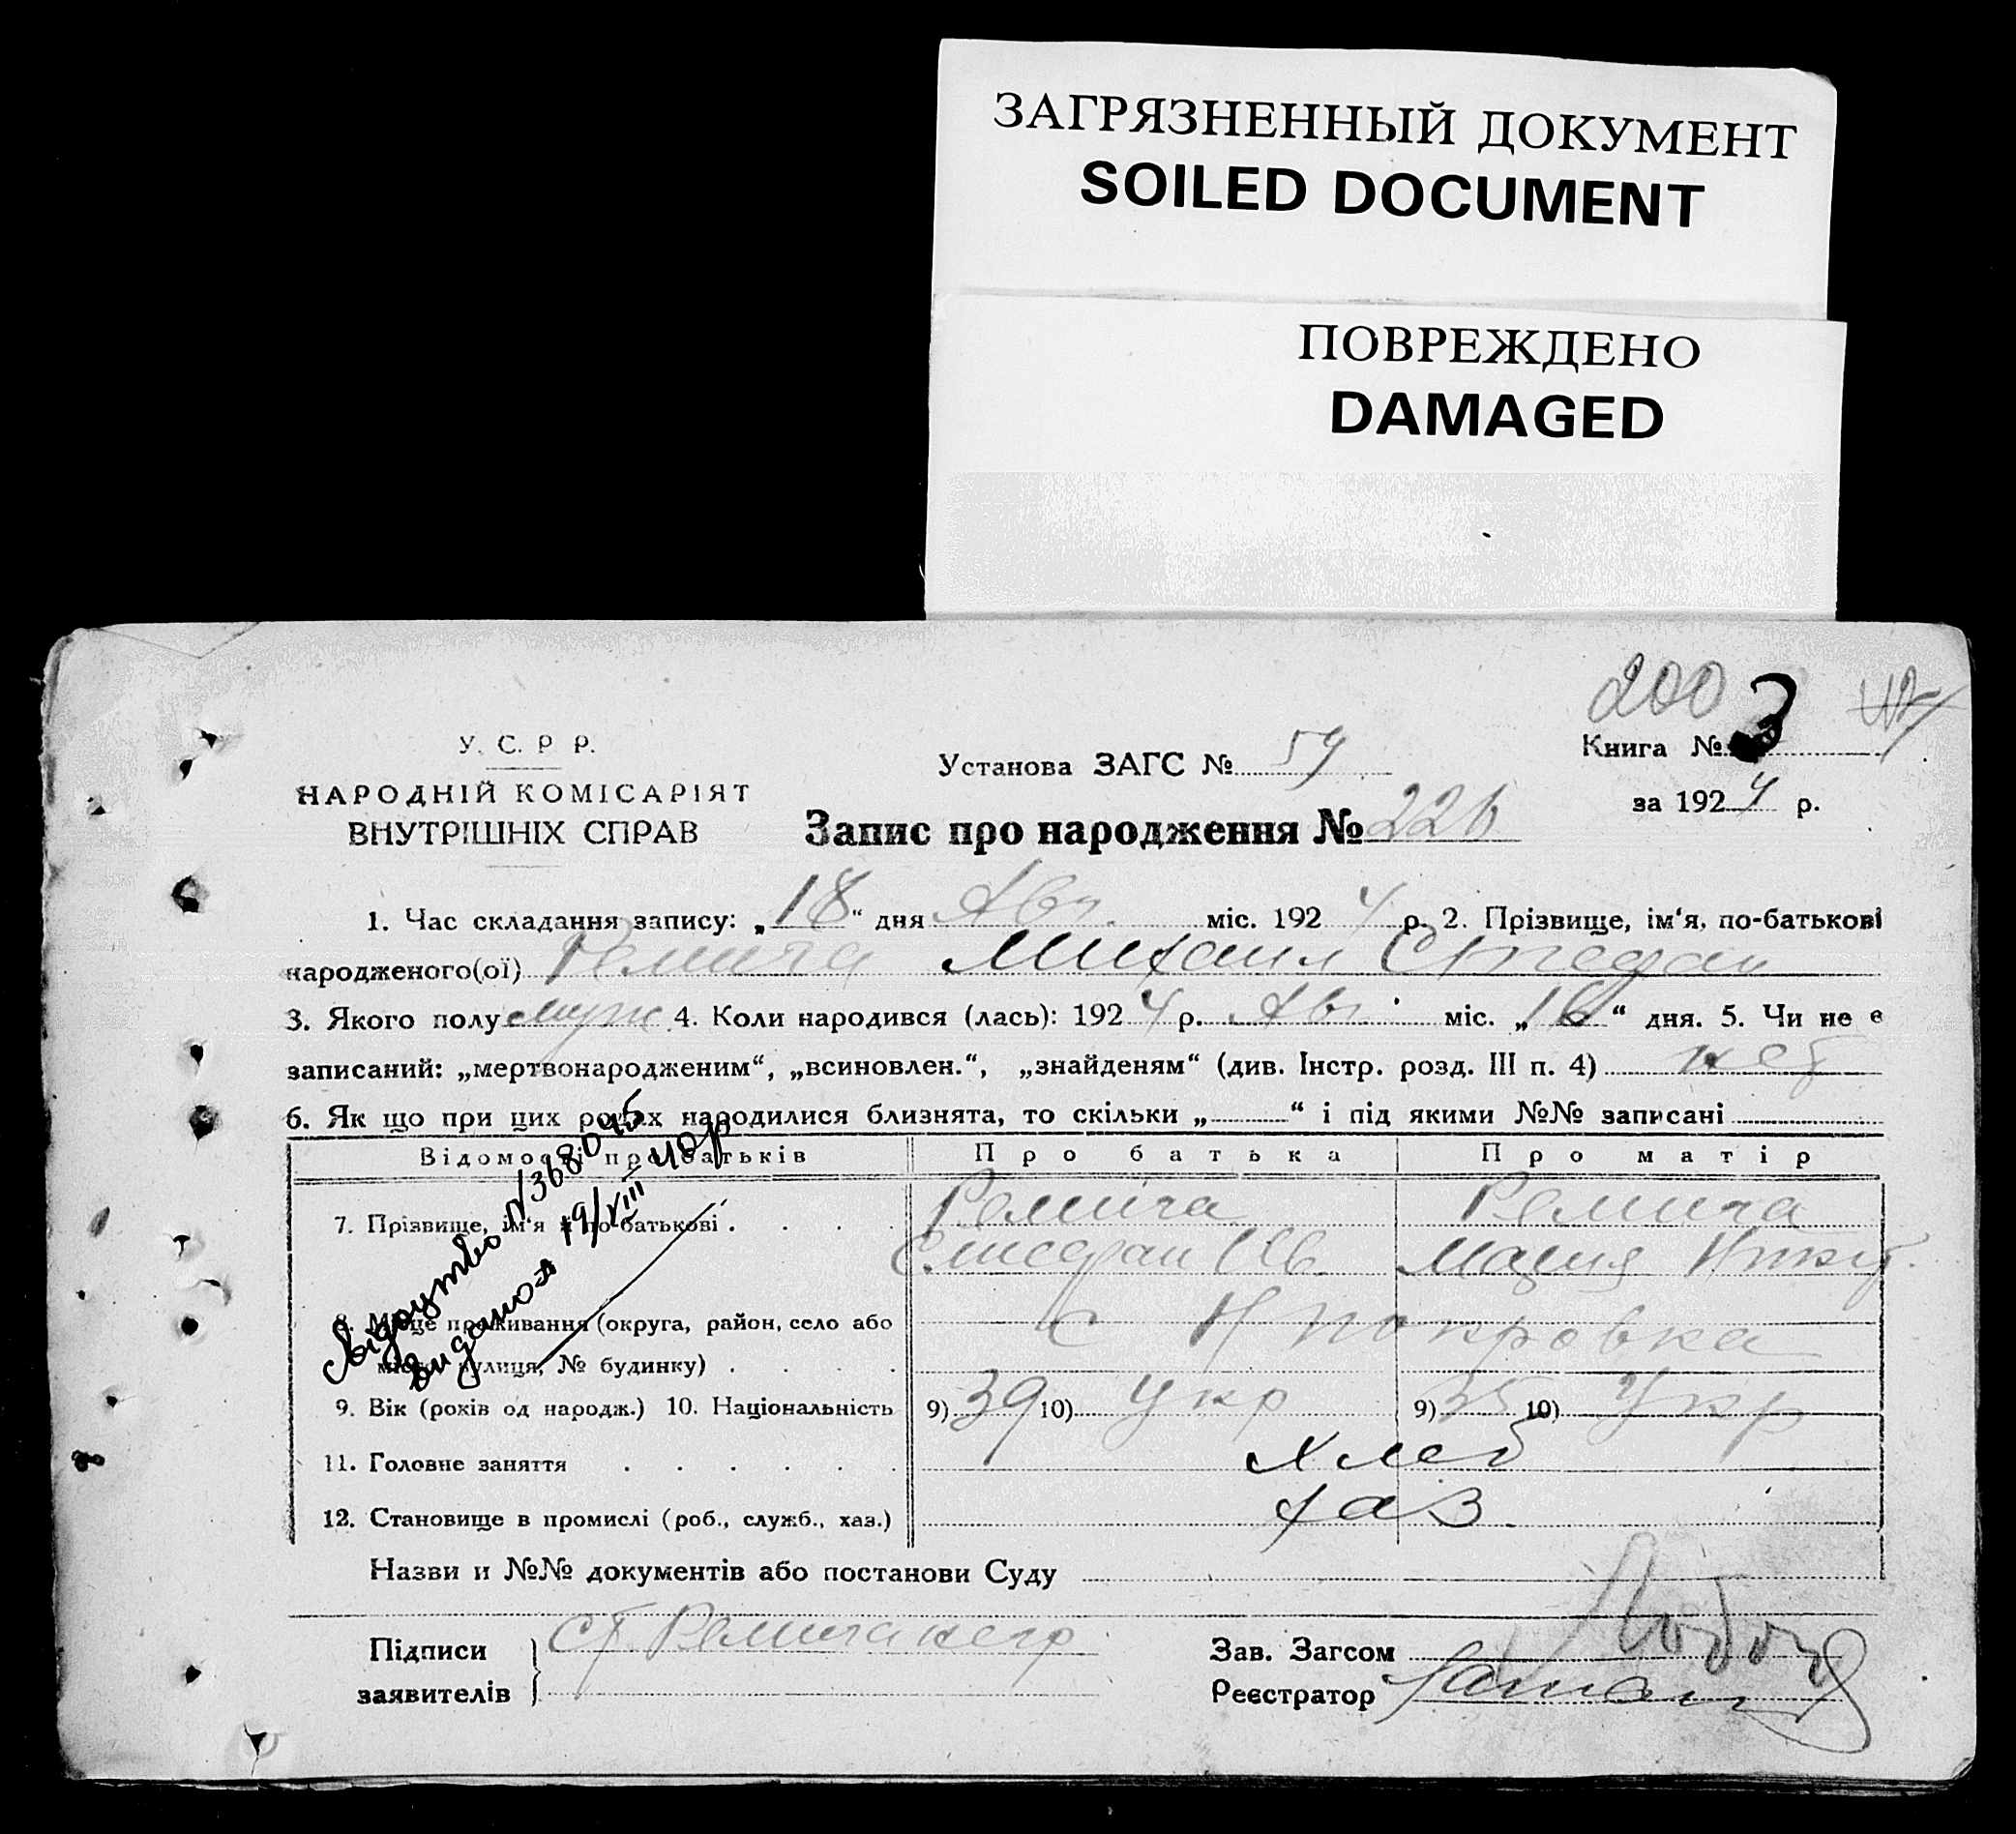 ЗАГРЯЗНЕННЫЙ ДОКУМЕНТ
SOILED DOCUMENT
ПОВРЕЖДЕНО
DAMAGED
200
У. С. Р Р.
НАРОДНІЙ КОМІСАРІЯТ
ВНУТРІШНІХ СПРАВ
Установа ЗАГС № 59
Книга № 3
за 1924 р.
Запис про народження № 226
1. Час складання запису: „18“ дня Авг. міс. 1924 р. 2. Прізвище, ім‘я, по-батькові
народженого(ої) Ремига Михаил Стефан
3. Якого полу муж 4. Коли народився (лась): 1924 р. Авг міс. „16“ дня. 5. Чи не є
записаний: „мертвонародженим“, „всиновлен.“, „знайденям“ (див. Інстр. розд. III п. 4) нет
6. Як що при цих родах народилися близнята, то скільки „ “ і під якими №№ записані
Відомості про батьків Про батька Про матір
7. Прізвище, ім‘я й по-батькові Ремига Ремига
Стефан Ив. Мария
8. Місце проживання (округа, район, село або с Н покровка
місто, вулиця, № будинку)
9. Вік (років од народж.) 10. Національність 9) 39 10) Укр 9) 35 10) Укр
11. Головне заняття Хлеб
12. Становище в промислі (роб., служб., хаз.) хаз.
Свідоцтво № 368045
видано 19/VIII 40р
Назви и №№ документів або постанови Суду
Підписи ст. Ремига негр
заявителів
Зав. Загсом
Реєстратор